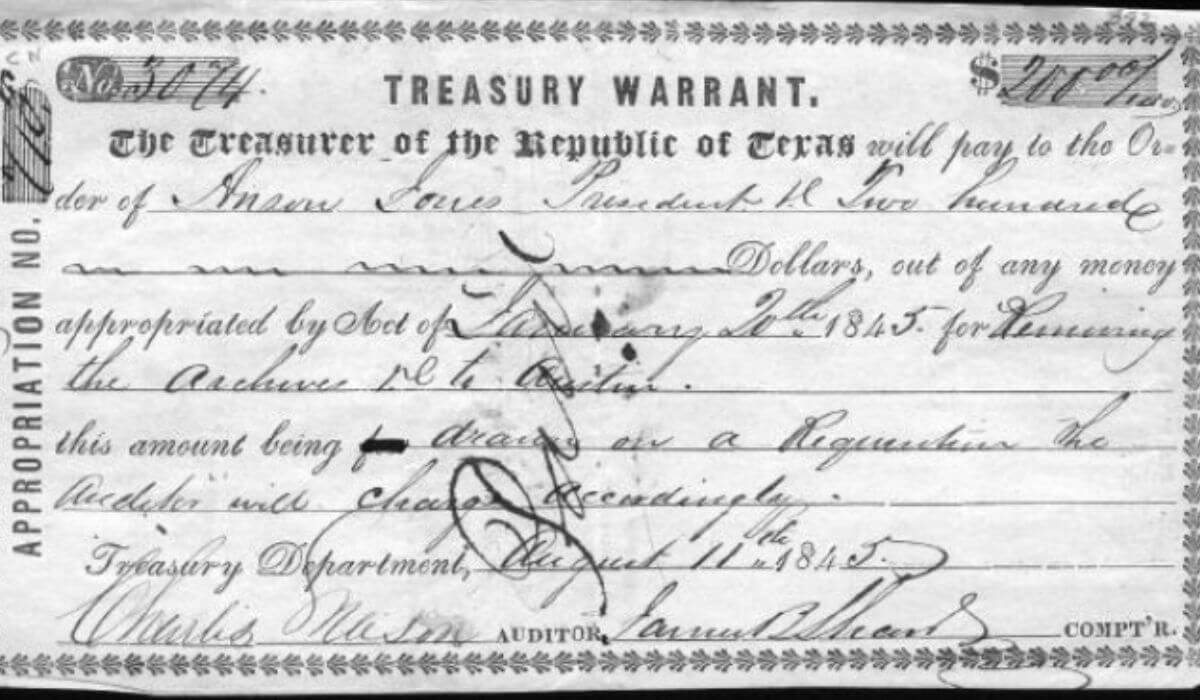 No. 3074.
TREASURY WARRANT.
$ 200 00/100
The Treasurer of the Republic of Texas will pay to the Or=
der of Anson Jones President &c Two hundred
Dollars, out of any money
appropriated by Act of January 20th 1845. for Removing
the archives &c to Austin.
this amount being drawn on a Requisition the
Auditor will charge accordingly.
Treasury Department, August 11th 1845.
Charles Mason AUDITOR, James B Shaw COMPT'R.
APPROPRIATION NO.